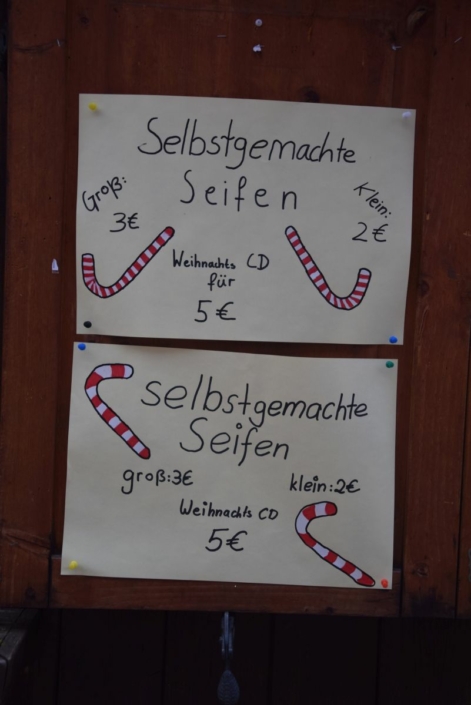 Selbstgemachte
Seifen
Groß:
3€
Klein:
2€
Weihnachts CD
für
5€
selbstgemachte
Seifen
groß:3€
klein:2€
Weihnachts CD
5€